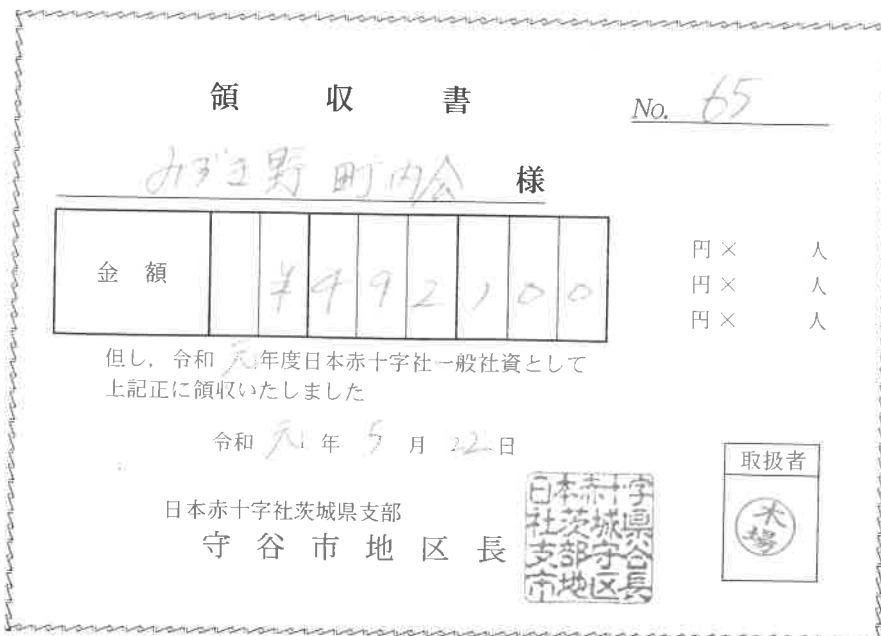 領収書
No. 65
みずき野町内会 様
金額 ¥492100
円× 人
円× 人
円× 人
但し,令和元年度日本赤十字社一般社資として
上記正に領収いたしました
令和元年5月22日
日本赤十字社茨城県支部
守谷市地区長
日本赤十字
社茨城県
支部守谷
市地区長
取扱者
木場